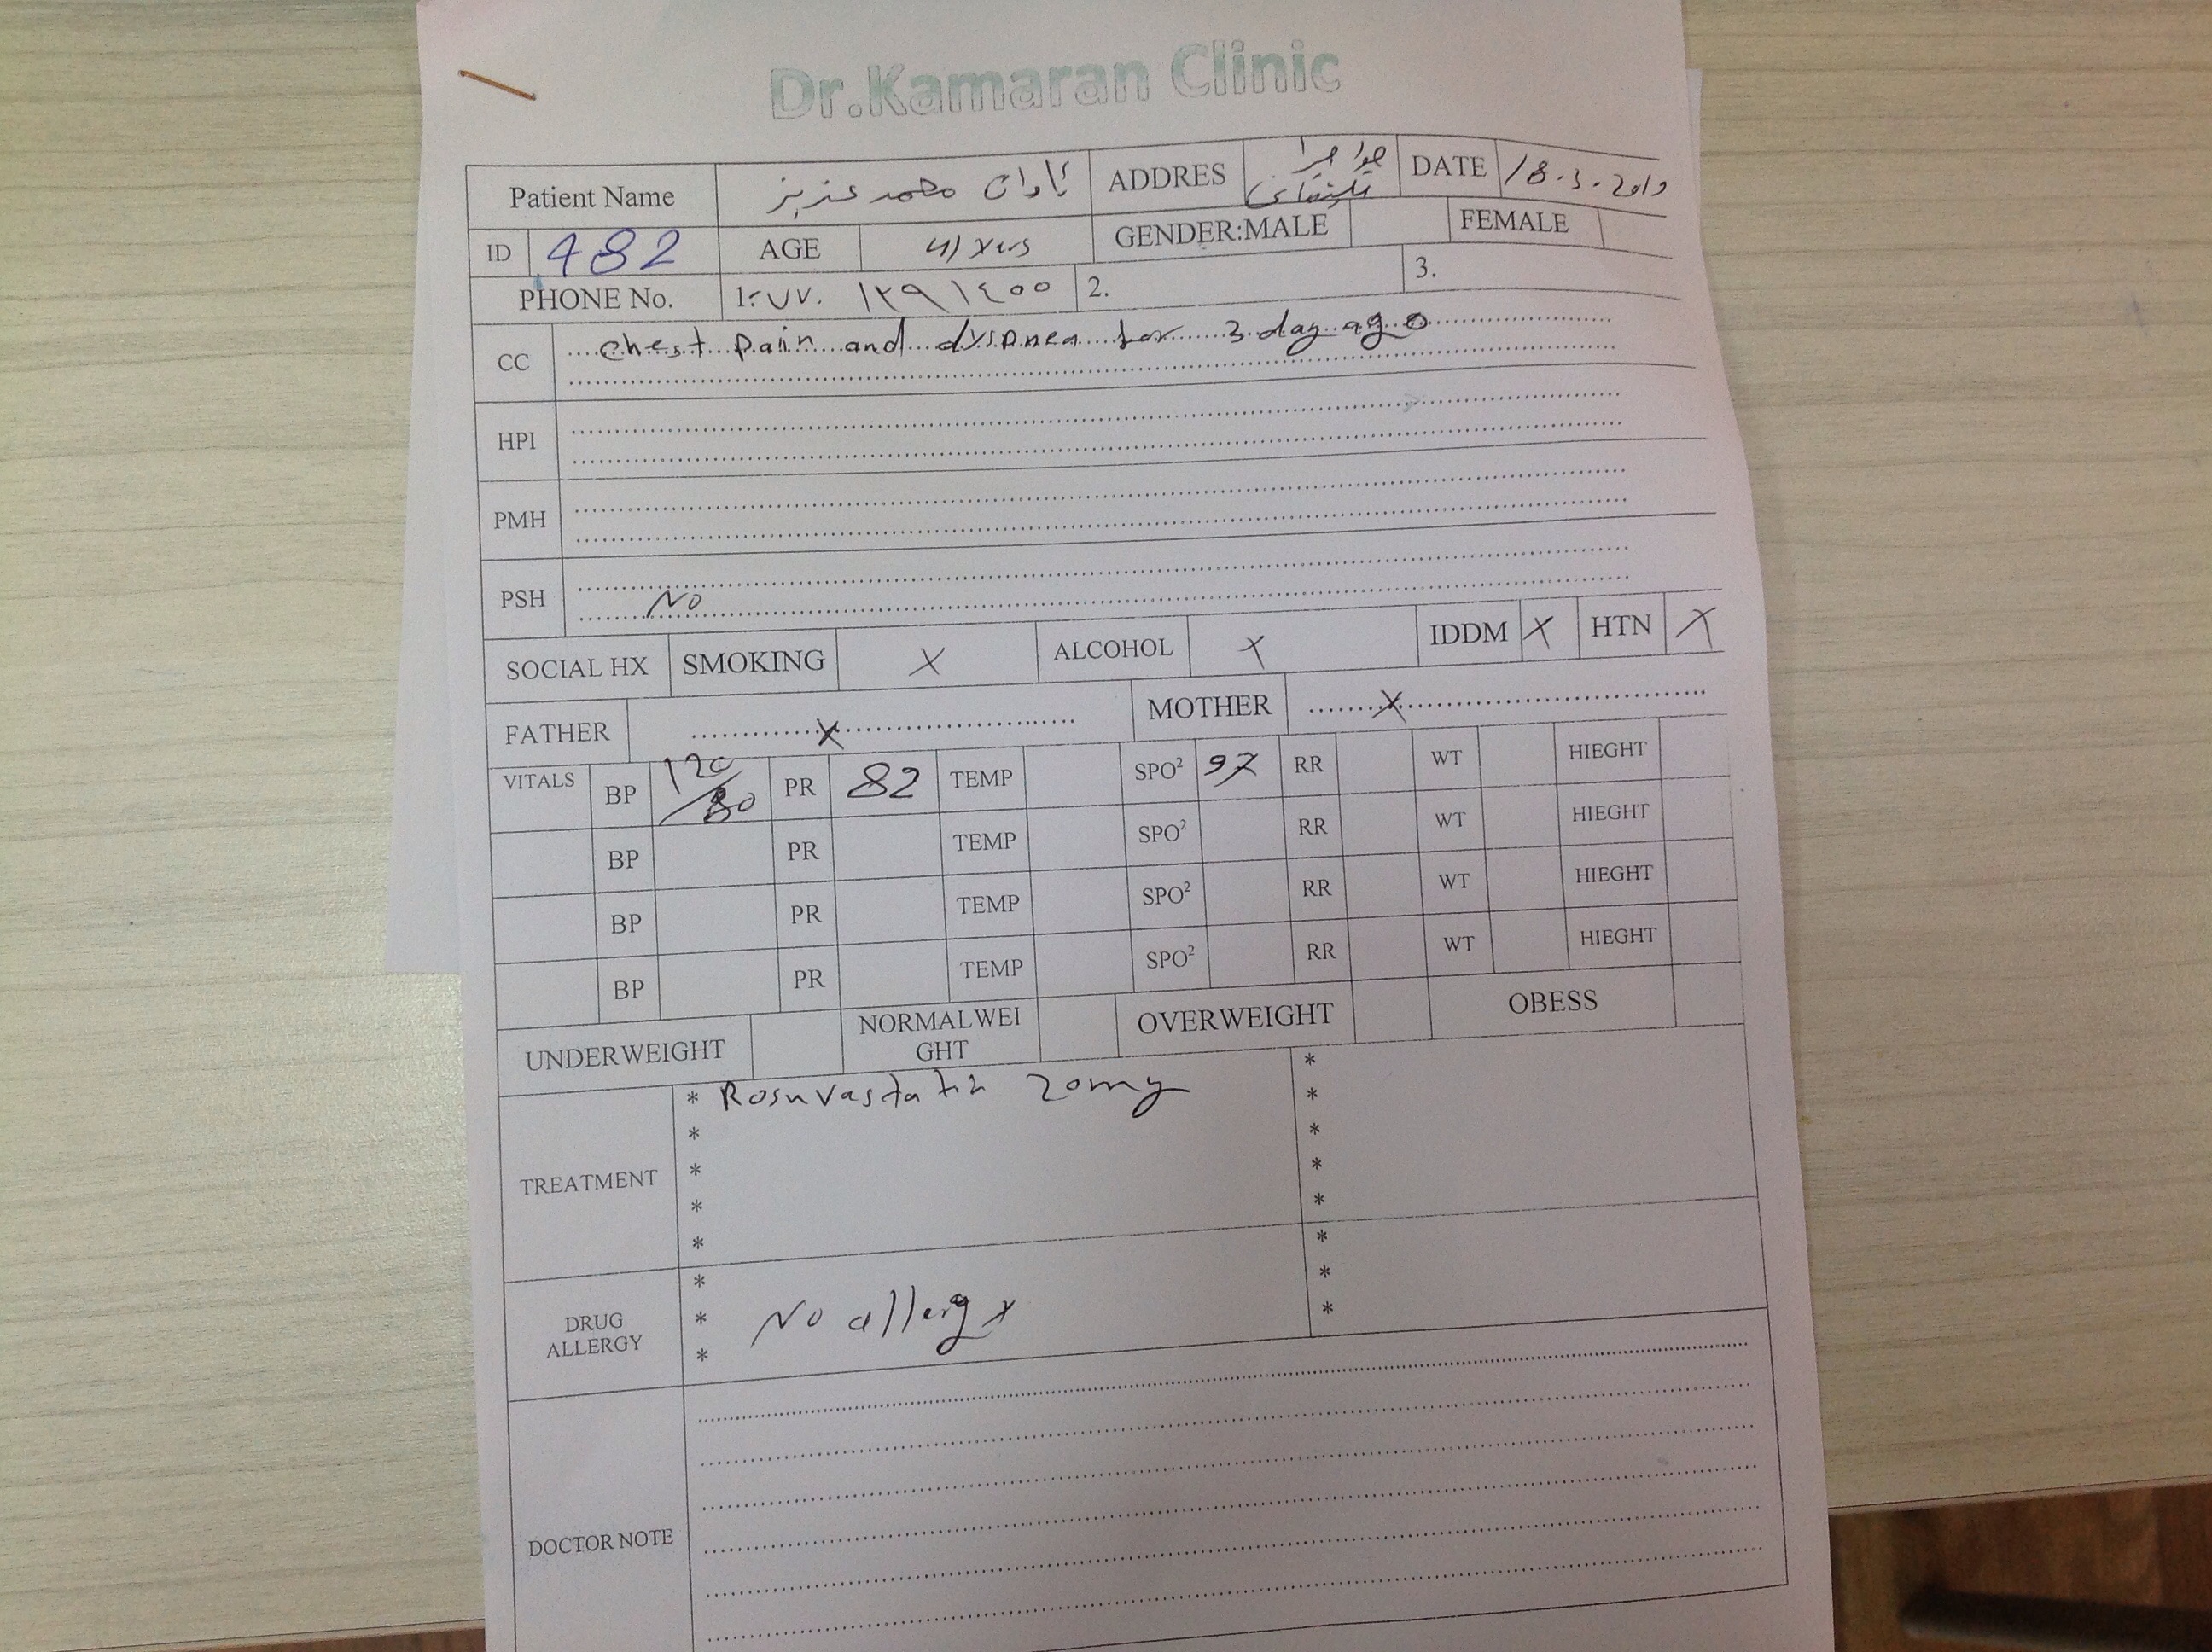 Dr.Kamaran Clinic
Patient Name ئاوات محمد عزیز ADDRES DATE 18.3.2019
ID 482 AGE 41 yrs GENDER:MALE FEMALE
PHONE No. 1.٠٧٧٠ ١٢٩١٤٠٠ 2. 3.
CC chest pain and dyspnea for 3 day ago
HPI
PMH
PSH No
SOCIAL HX SMOKING X ALCOHOL X IDDM X HTN X
FATHER X MOTHER X
VITALS BP 120/80 PR 82 TEMP SPO² 97 RR WT HIEGHT
BP PR TEMP SPO² RR WT HIEGHT
BP PR TEMP SPO² RR WT HIEGHT
BP PR TEMP SPO² RR WT HIEGHT
UNDERWEIGHT NORMALWEI
GHT OVERWEIGHT OBESS
TREATMENT * Rosuvastatin 20mg *
* *
* *
* *
* *
DRUG
ALLERGY * *
* No allergy *
* *
DOCTOR NOTE